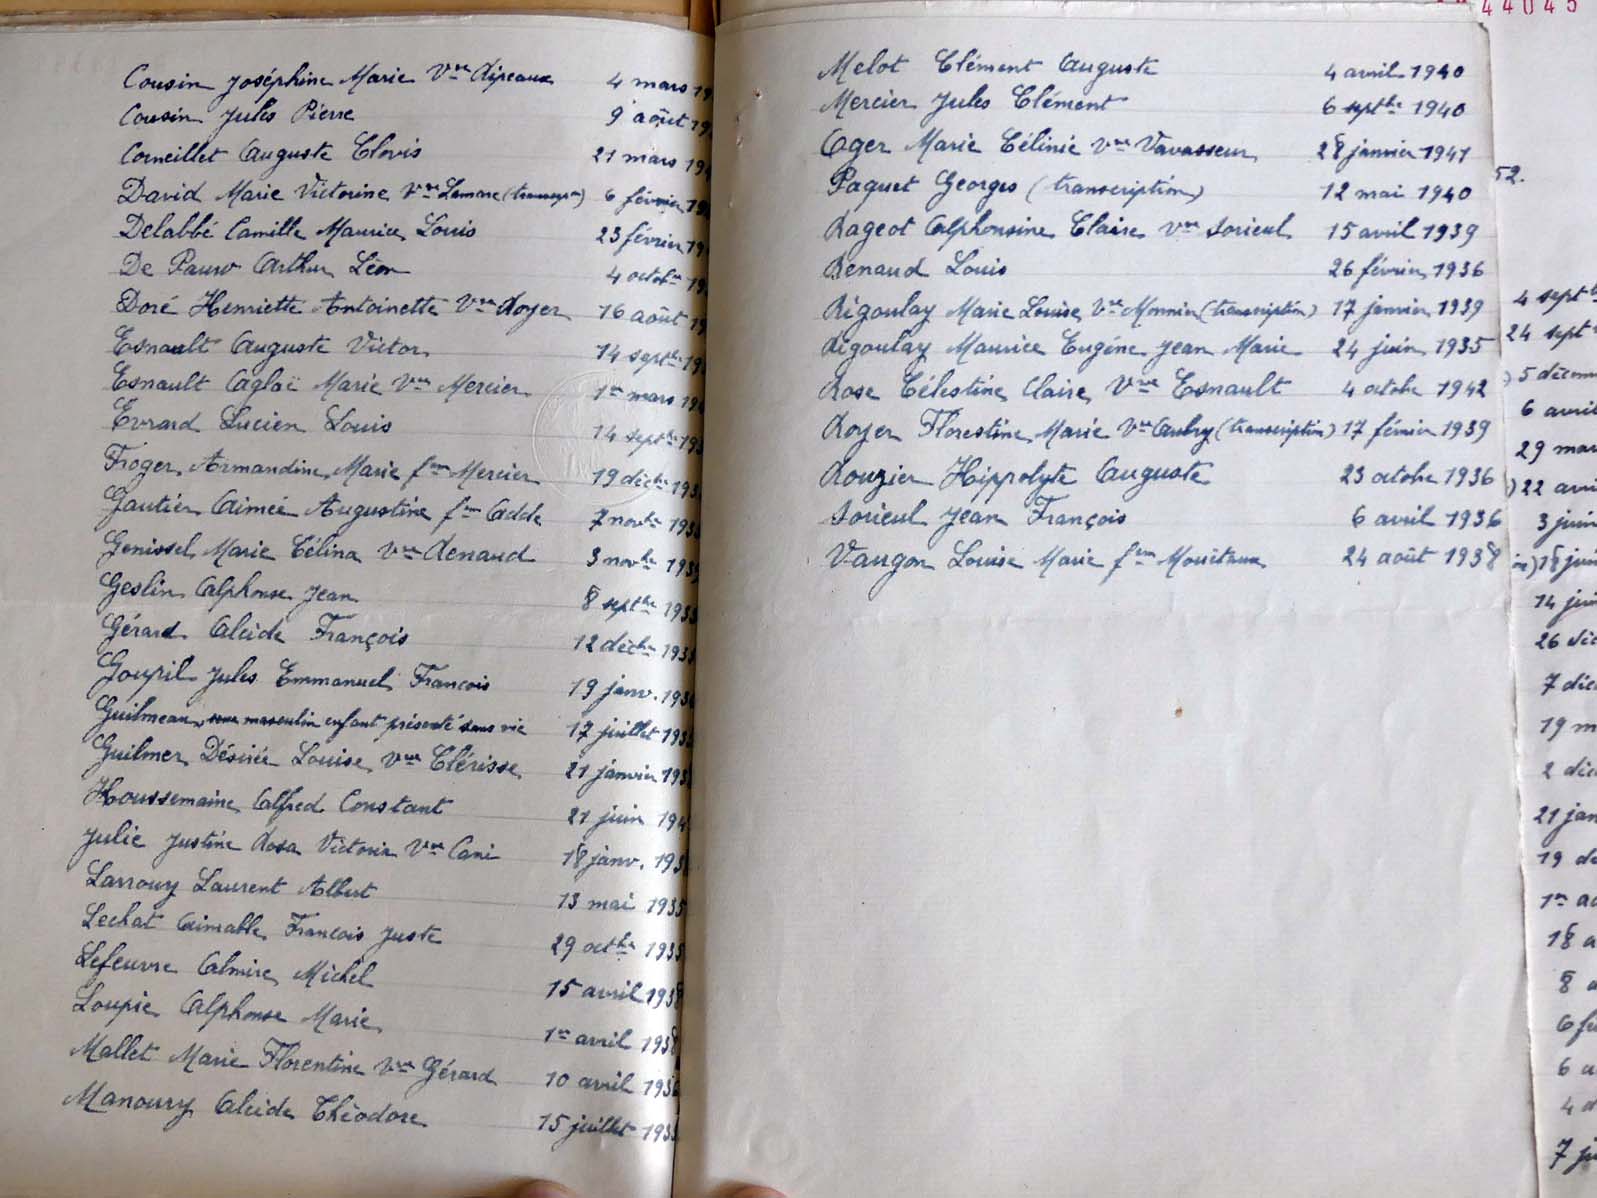 Cousin Joséphine Marie Vve Ripeaux 4 mars 19
Cousin Jules Pierre 9 août 19
Corneillet Auguste Clovis 21 mars 194
David Marie Victorine Vve Lamare (transcron) 6 février 19
Delabbé Camille Maurice Louis 23 février 19
De Pauw Arthur Léon 4 octobre 19
Doré Henriette Antoinette Vve Royer 16 août 19
Esnault Auguste Victor 14 septbre 19
Esnault Aglaë Marie Vve Mercier 1er mars 194
Evrard Lucien Louis 14 septbre 193
Froger Armandine Marie fme Mercier 19 décbre 193
Gautier Aimée Augustine fme Adde 7 novbre 193
Genissel Marie Célina Vve Renaud 3 novbre 193
Geslin Alphonse Jean 8 septbre 193
Gérard Alcide François 12 décbre 193
Goupil Jules Emmanuel François 19 janv. 193
Guilmeau sexe masculin enfant présenté sans vie 17 juillet 193
Guilmer Désirée Louise Vve Clérisse 21 janvier 193
Houssemaine Alfred Constant 21 juin 194
Julie Justine Rosa Victoria Vve Cani 18 janv. 193
Larrouy Laurent Albert 13 mai 1935
Lechat Aimable François Juste 29 octbre 193
Lefeuvre Almire Michel 15 avril 1938
Loupie Alphonse Marie 1er avril 1938
Mallet Marie Florentine Vve Gérard 10 avril 193
Manoury Alcide Théodore 15 juillet 193
44045
Melot Clément Auguste 4 avril 1940
Mercier Jules Clément 6 septbre 1940
Oger Marie Célinie Vve Vavasseur 28 janvier 1941
Paquet Georges (transcription) 12 mai 1940
Rageot Alphonsine Claire Vve Sorieul 15 avril 1939
Renaud Louis 26 février 1936
Rigoulay Marie Louise Vve Monnier (transcription) 17 janvier 1939
Rigoulay Maurice Eugène Jean Marie 24 juin 1935
Rose Célestine Claire Vve Esnault 4 octobre 1942
Royer Florestine Marie Vve Aubry (transcription) 17 février 1939
Rouzier Hippolyte Auguste 23 octobre 1936
Sorieul Jean François 6 avril 1936
Vaugon Louise Marie fme 24 août 1938
52.
4 septb
24 sept
5 décem
6 avril
29 mar
22 avri
3 juin
18 juin
14 jui
26 déc
7 déc
19 m
2 déc
21 jan
19 dé
1er ao
18 a
8 a
6 fé
6 a
4 d
7 ju